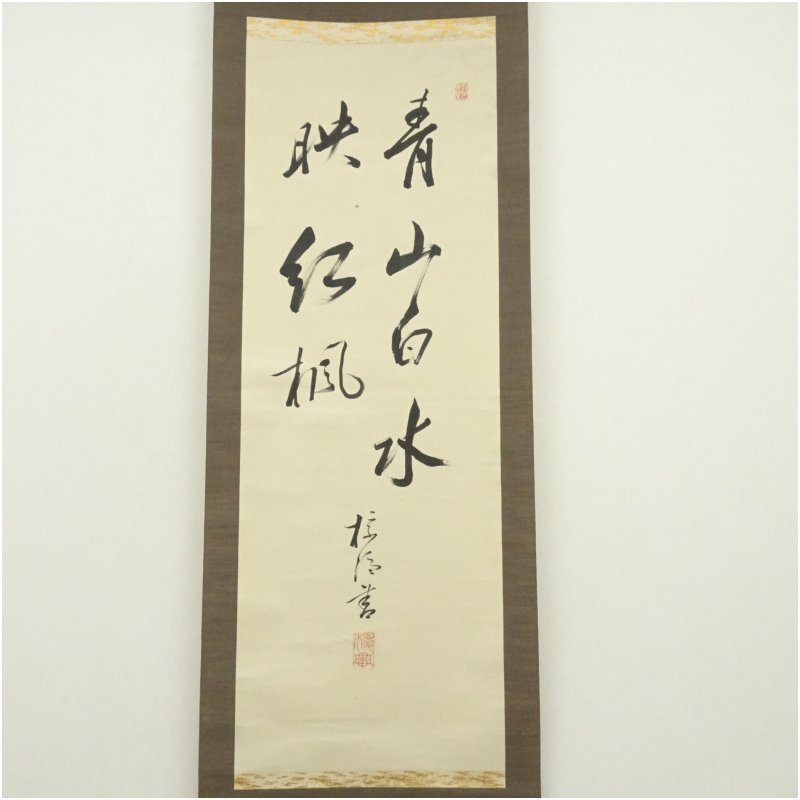 青山白水
映紅楓
書